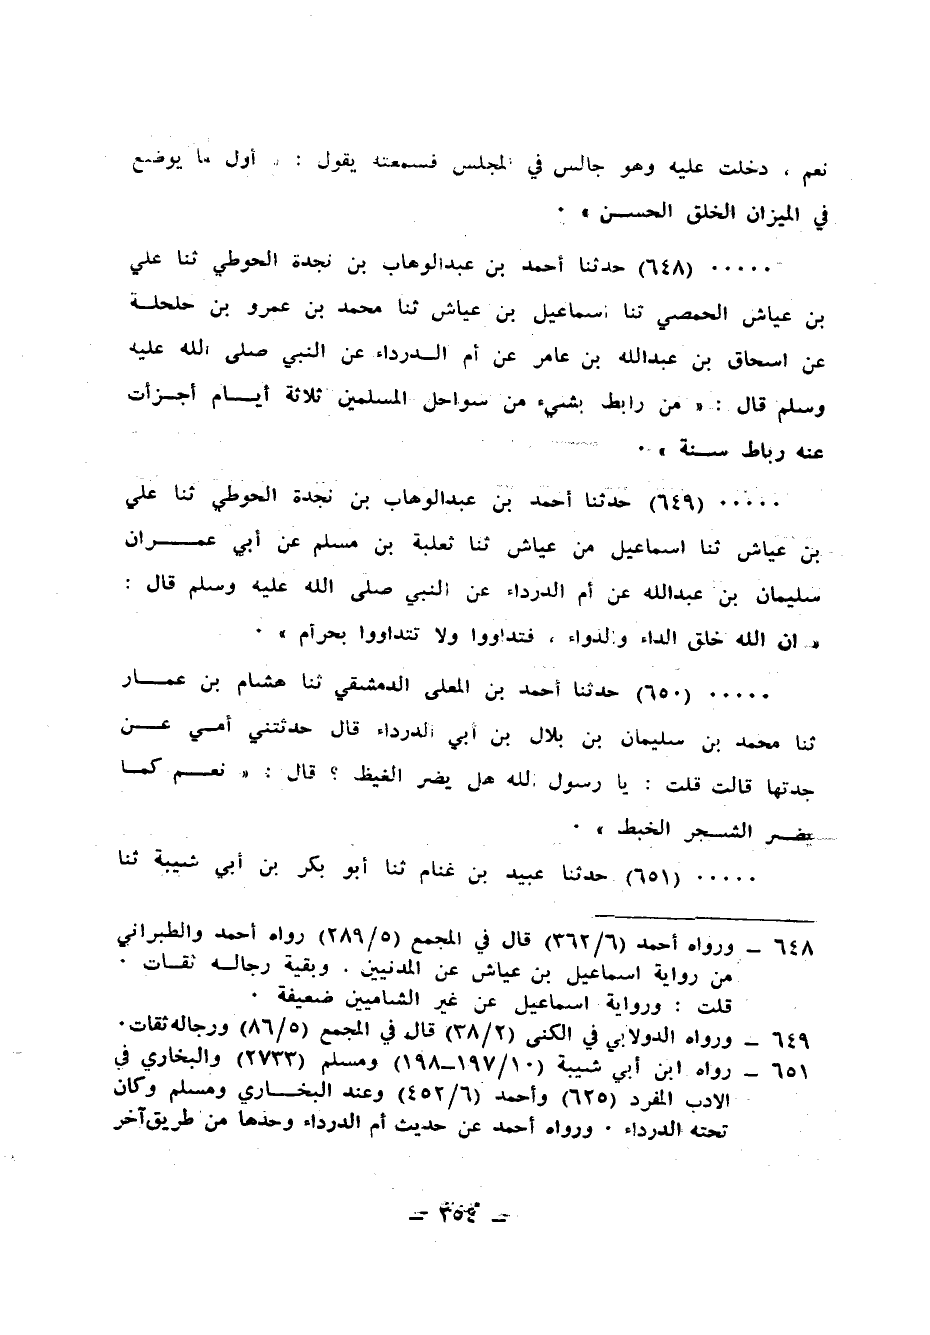 نعم ، دخلت عليه وهو جالس في المجلس فسمعته يقول : « أول ما يوضع
في الميزان الخلق الحسن » ٠
٠٠٠٠٠ (٦٤٨) حدثنا أحمد بن عبدالوهاب بن نجدة الحوطي ثنا علي
بن عياش الحمصي ثنا اسماعيل بن عياش ثنا محمد بن عمرو بن حلحلة
عن اسحاق بن عبدالله بن عامر عن أم الدرداء عن النبي صلى الله عليه
وسلم قال : « من رابط بشيء من سواحل المسلمين ثلاثة أيام أجزأت
عنه رباط سنة » ٠
٠٠٠٠٠ (٦٤٩) حدثنا أحمد بن عبدالوهاب بن نجدة الحوطي ثنا علي
بن عياش ثنا اسماعيل من عياش ثنا ثعلبة بن مسلم عن أبي عمران
سليمان بن عبدالله عن أم الدرداء عن النبي صلى الله عليه وسلم قال :
« ان الله خلق الداء والدواء ، فتداووا ولا تتداووا بحرام » ٠
٠٠٠٠٠ (٦٥٠) حدثنا أحمد بن المعلى الدمشقي ثنا هشام بن عمار
ثنا محمد بن سليمان بن بلال بن أبي الدرداء قال حدثتني أمي عن
جدتها قالت قلت : يا رسول الله هل يضر الغيظ ؟ قال : « نعم كما
يضر الشجر الخبط » ٠
٠٠٠٠٠ (٦٥١) حدثنا عبيد بن غنام ثنا أبو بكر بن أبي شيبة ثنا
٦٤٨ ــ ورواه أحمد (٣٦٢/٦) قال في المجمع (٢٨٩/٥) رواه أحمد والطبراني
من رواية اسماعيل بن عياش عن المدنيين ٠ وبقية رجاله ثقات ٠
قلت : ورواية اسماعيل عن غير الشاميين ضعيفة ٠
٦٤٩ ــ ورواه الدولابي في الكنى (٣٨/٢) قال في المجمع (٨٦/٥) ورجاله ثقات٠
٦٥١ ــ رواه ابن أبي شيبة (١٩٧/١٠ــ١٩٨) ومسلم (٢٧٣٣) والبخاري في
الادب المفرد (٦٢٥) وأحمد (٤٥٢/٦) وعند البخاري ومسلم وكان
تحته الدرداء ٠ ورواه أحمد عن حديث أم الدرداء وحدها من طريق آخر
ــ ٣٥٤ ــ